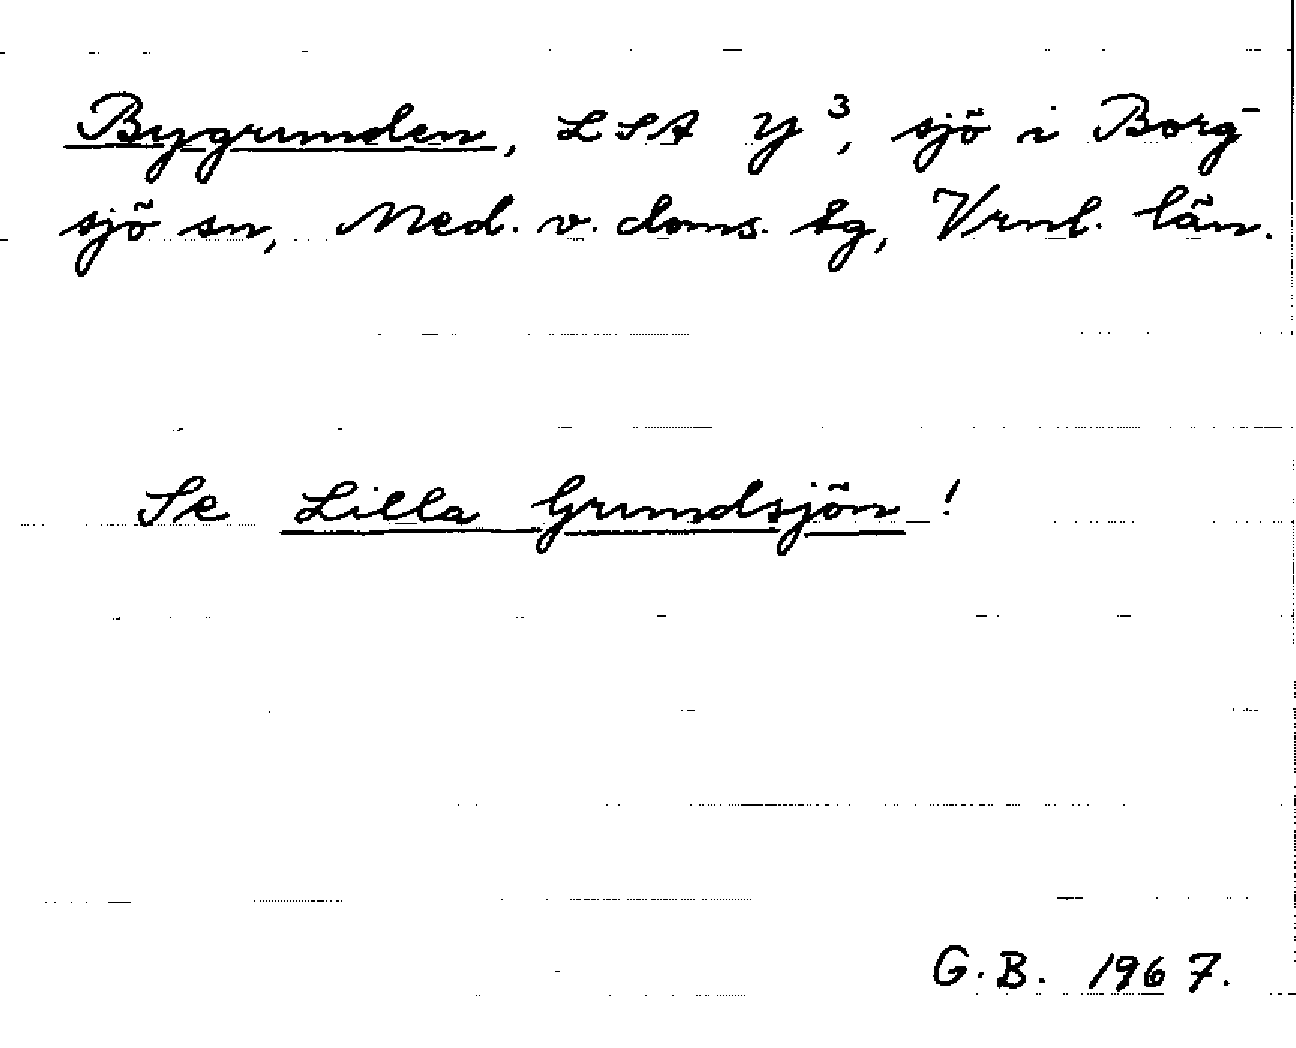 Bygrunden, LSA Y³, sjö i Borg-
sjö sn, Med. v. doms. tg, Vrnl. län.
Se Lilla Grundsjön!
G.B. 1967.